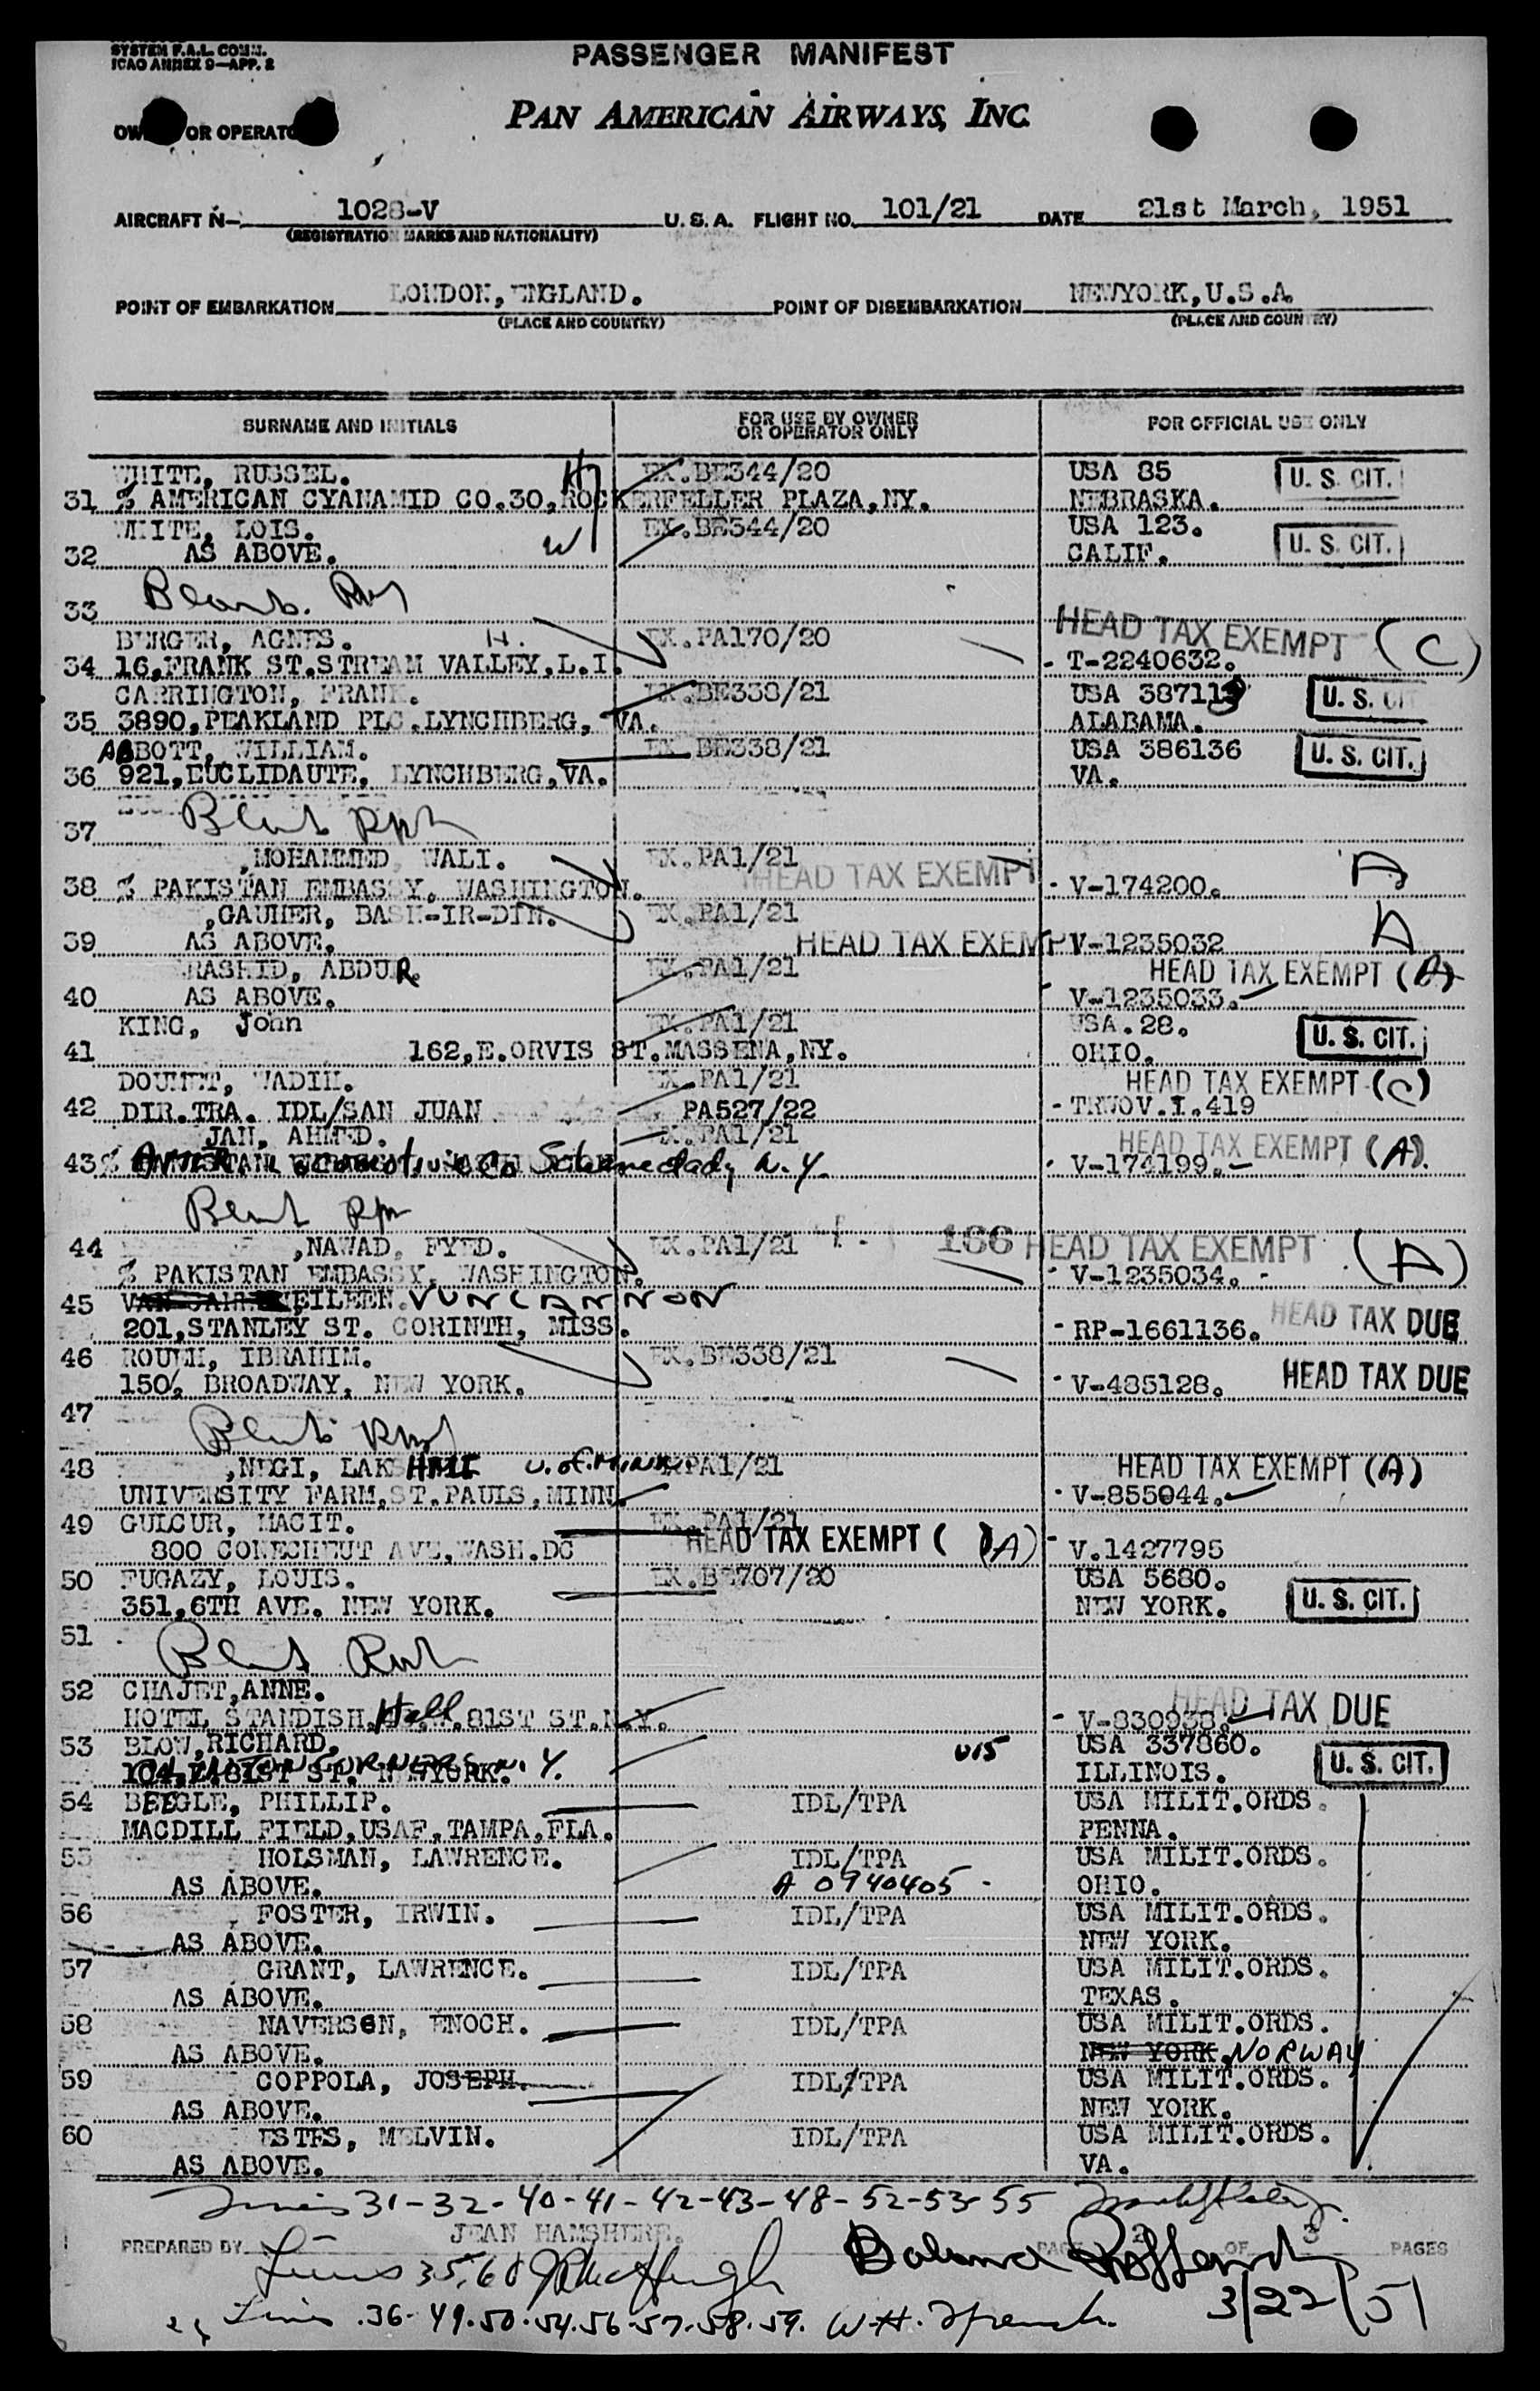 SYSTEM F.A.L. COMM.
ICAO ANNEX 9—APP. 2
PASSENGER MANIFEST
PAN AMERICAN AIRWAYS, INC.
OR OPERATO
AIRCRAFT N— 1028-V U. S. A. FLIGHT NO. 101/21 DATE 21st March, 1951
(REGISTRATION MARKS AND NATIONALITY)
POINT OF EMBARKATION LONDON, ENGLAND. POINT OF DISEMBARKATION NEWYORK, U.S.A.
(PLACE AND COUNTRY) (PLACE AND COUNTRY)
SURNAME AND INITIALS FOR USE BY OWNER OR OPERATOR ONLY FOR OFFICIAL USE ONLY
WHITE, RUSSEL. H EX.BE344/20 USA 85 U. S. CIT.
31 % AMERICAN CYANAMID CO.30,ROCKERFELLER PLAZA,NY. NEBRASKA.
WHITE, LOIS. W EX.BE344/20 USA 123. U. S. CIT.
32 AS ABOVE. CALIF.
33 Blank
BERGER, AGNES. H. EX.PA170/20 HEAD TAX EXEMPT (C)
34 16,FRANK ST.STREAM VALLEY,L.I. - T-2240632.
CARRINGTON, FRANK. EX.BE338/21 USA 38711 U. S. CI
35 3890,PEAKLAND PLC.LYNCHBERG, VA. ALABAMA.
ABBOTT, WILLIAM. EX.BE338/21 USA 386136 U. S. CIT.
36 921,EUCLIDAUTE, LYNCHBERG,VA. VA.
37 Blank
,MOHAMMED WALI. EX.PA1/21 HEAD TAX EXEMPT A
38 % PAKISTAN EMBASSY, WASHINGTON. - V-174200.
,GAUHER, BASH-IR-DIN. EX.PA1/21 A
39 AS ABOVE. HEAD TAX EXEMPT V-1235032
RASHID, ABDUR EX.PA1/21 HEAD TAX EXEMPT (A)
40 AS ABOVE. V-1235033.
KING, John EX.PA1/21 USA.28. U. S. CIT.
41 162,E.ORVIS ST.MASSENA,NY. OHIO.
DOUMET, WADIH. EX.PA1/21 HEAD TAX EXEMPT (C)
42 DIR.TRA. IDL/SAN JUAN PA527/22 - TRWOV.I.419
JAN, AHMED. EX.PA1/21 HEAD TAX EXEMPT (A)
43 % Amer Locomotive Co Schenectady N.Y. V-174199.
Blank
44 ,NAWAD, FYED. EX.PA1/21 166 HEAD TAX EXEMPT (A)
% PAKISTAN EMBASSY, WASHINGTON. - V-1235034.
45 EILEEN. VUNCANNON
201,STANLEY ST. CORINTH, MISS. - RP-1661136. HEAD TAX DUE
46 ROUEH, IBRAHIM. EX.BE338/21
150, BROADWAY, NEW YORK. - V-485128. HEAD TAX DUE
47 Blank
48 ,NEGI, LAKSHMI U. of. MINN EX.PA1/21 HEAD TAX EXEMPT (A)
UNIVERSITY FARM,ST.PAULS,MINN. - V-855044.
49 GULCUR, MACIT. EX.PA1/21
800 CONECHEUT AVE,WASH.DC HEAD TAX EXEMPT (A) - V.1427795
50 FUGAZY, LOUIS. EX.BE707/20 USA 5680.
351,6TH AVE. NEW YORK. NEW YORK. U. S. CIT.
51 Blank
52 CHAJET,ANNE.
HOTEL STANDISH, Hall 81ST ST.N.Y. - V-830938. HEAD TAX DUE
53 BLOW,RICHARD. U15 USA 337860.
104, 81ST ST. NEWYORK. N. Y. ILLINOIS. U. S. CIT.
54 BEEGLE, PHILLIP. IDL/TPA USA MILIT.ORDS.
MACDILL FIELD,USAF,TAMPA,FLA. PENNA.
55 HOLSMAN, LAWRENCE. IDL/TPA USA MILIT.ORDS.
AS ABOVE. A 0940405 - OHIO.
56 FOSTER, IRWIN. IDL/TPA USA MILIT.ORDS.
AS ABOVE. NEW YORK.
57 GRANT, LAWRENCE. IDL/TPA USA MILIT.ORDS.
AS ABOVE. TEXAS.
58 NAVERSEN, ENOCH. IDL/TPA USA MILIT.ORDS.
AS ABOVE. NEW YORK. NORWAY
59 COPPOLA, JOSEPH. IDL/TPA USA MILIT.ORDS.
AS ABOVE. NEW YORK.
60 ESTES, MELVIN. IDL/TPA USA MILIT.ORDS.
AS ABOVE. VA.
Lines 31-32-40-41-42-43-48-52-53-55
PREPARED BY JEAN HAMSHERE. PAGE 2 OF 3 PAGES
Lines 35,60
3/22/51
Lines .36-49.50.54.56.57.58.59. W.H. French